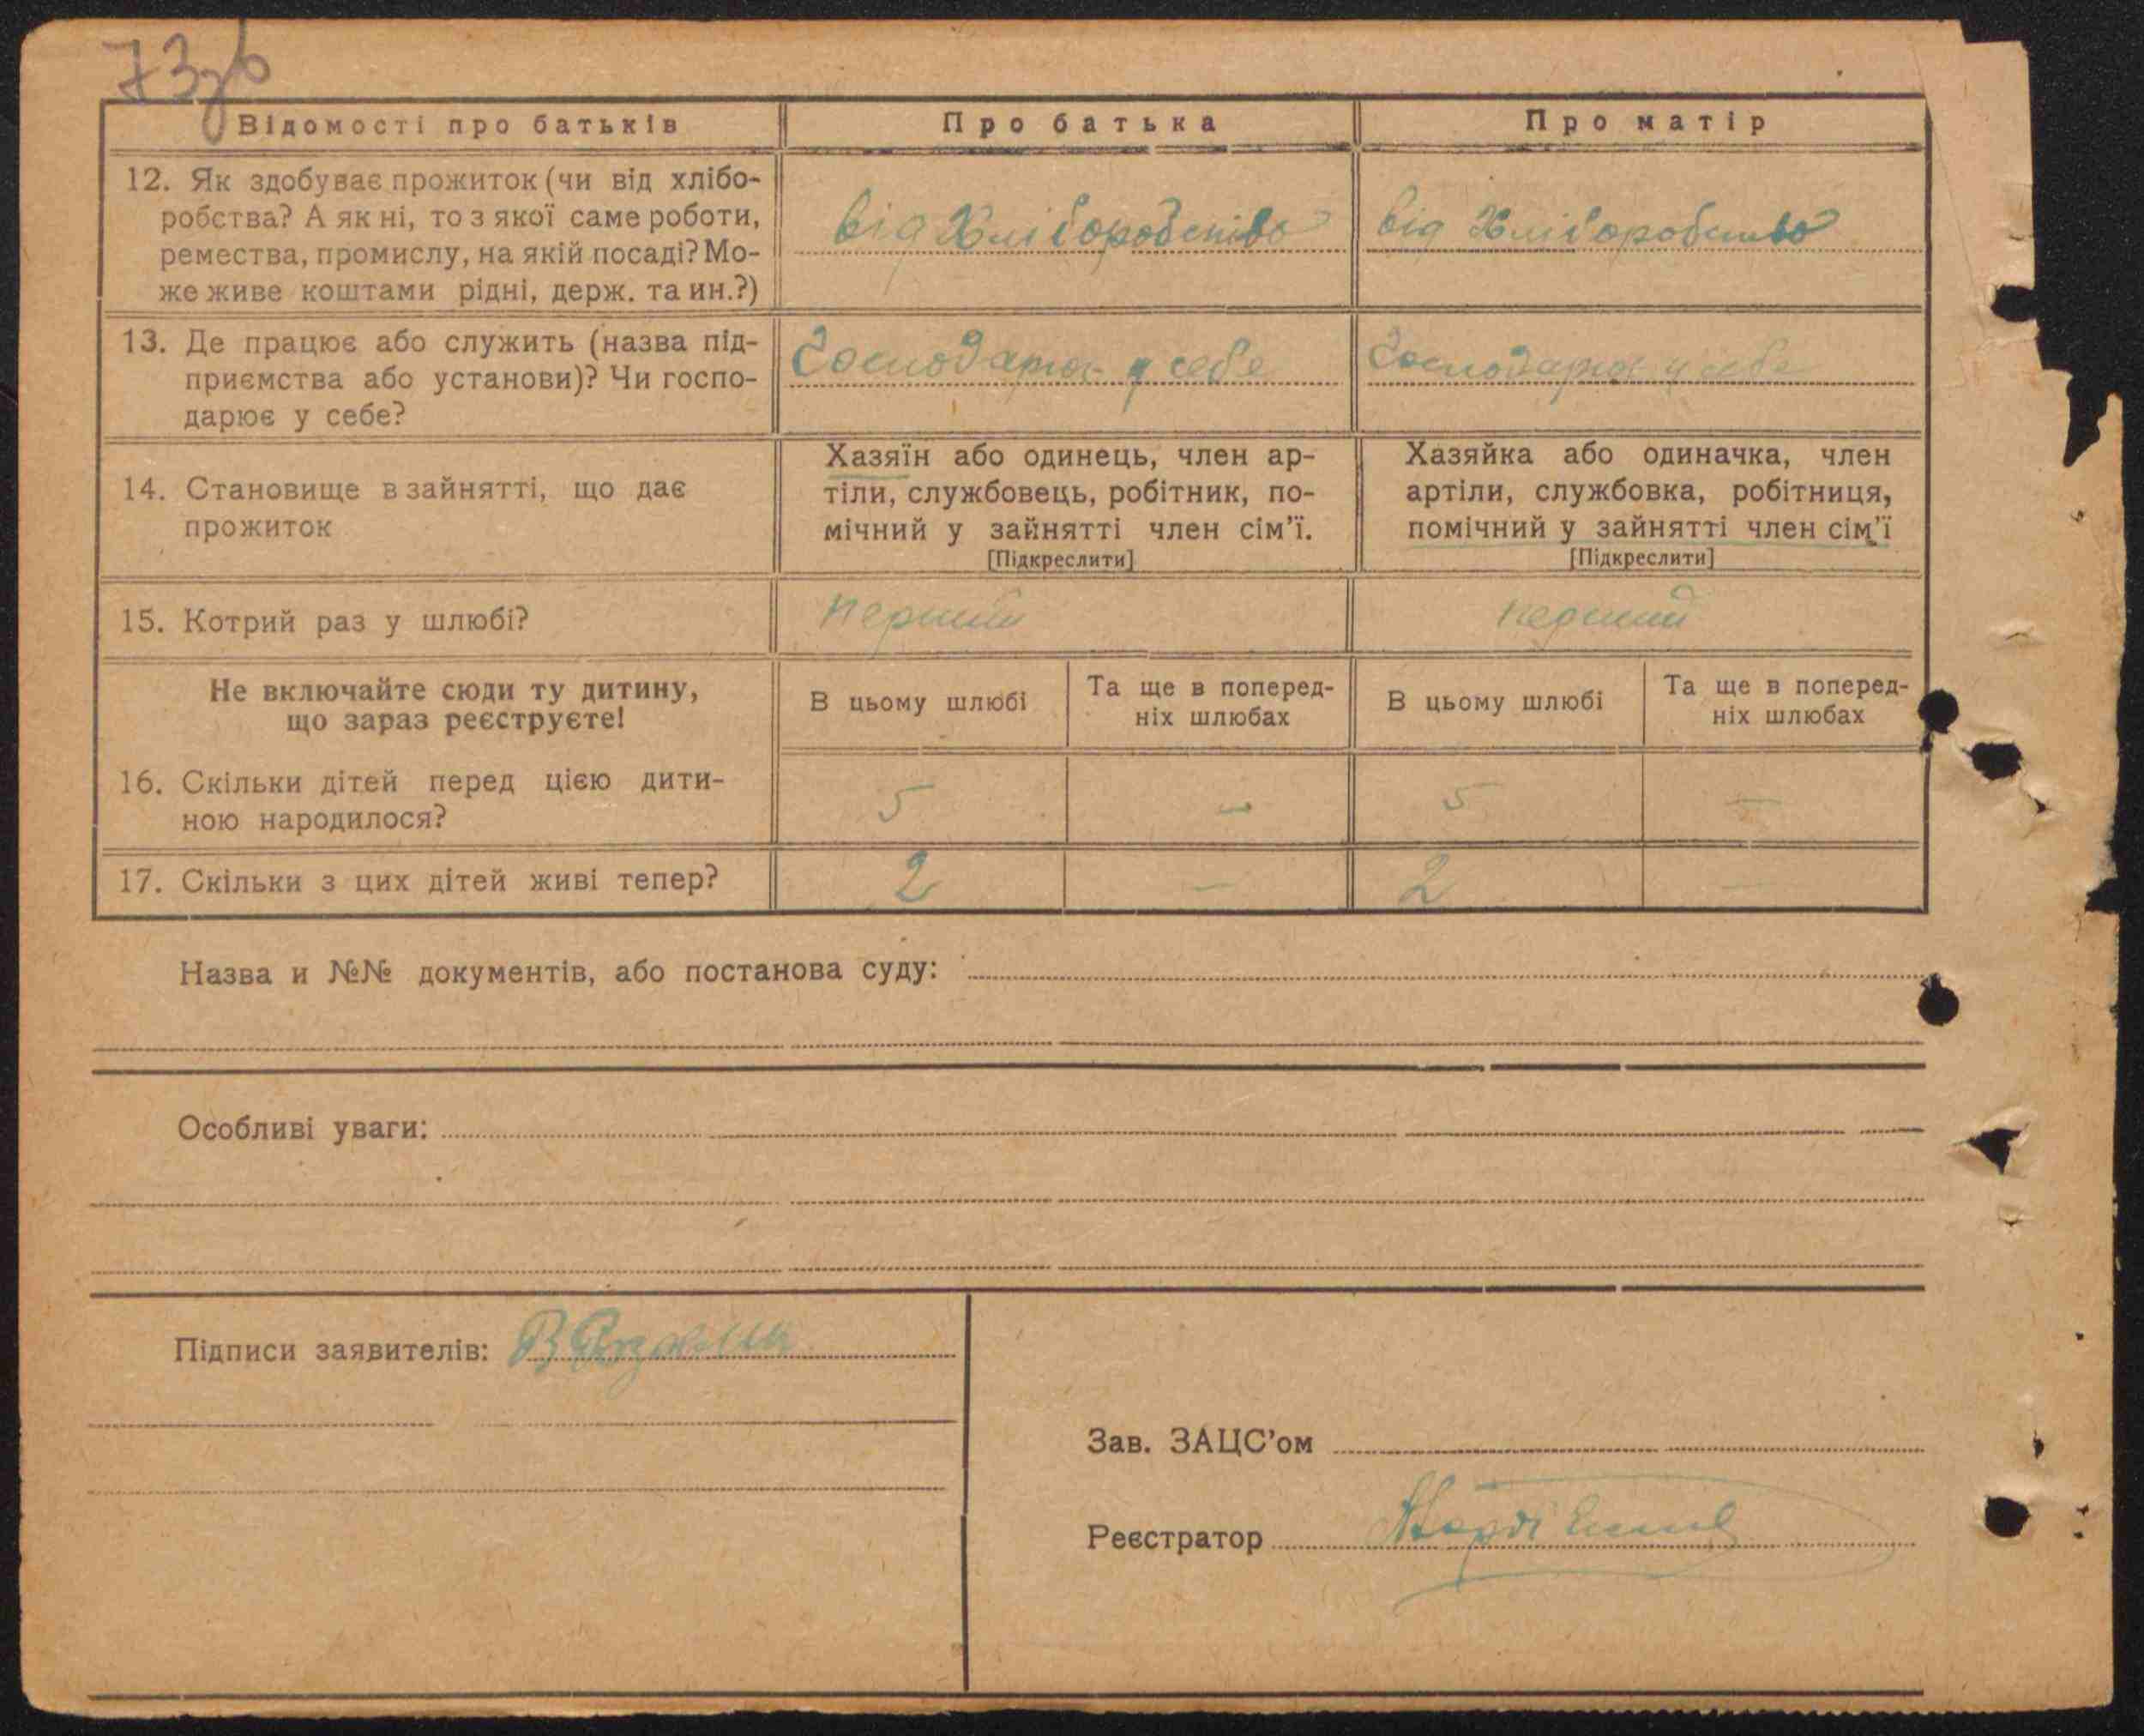 73зв
Відомості про батьків
Про батька
Про матір
12. Як здобуває прожиток (чи від хлібо-
робства? А як ні, то з якої саме роботи,
ремества, промислу, на якій посаді? Мо-
же живе коштами рідні, держ. та ин.?)
від Хліборобство
від Хліборобство
13. Де працює або служить (назва під-
приємства або установи)? Чи госпо-
дарює у себе?
Господарює у себе
Господарює у себе
14. Становище в зайнятті, що дає
прожиток
Хазяїн або одинець, член ар-
тіли, службовець, робітник, по-
мічний у зайнятті член сім'ї.
[Підкреслити]
Хазяйка або одиначка, член
артіли, службовка, робітниця,
помічний у зайнятті член сім'ї
[Підкреслити]
15. Котрий раз у шлюбі?
перший
перший
Не включайте сюди ту дитину,
що зараз реєструєте!
В цьому шлюбі
Та ще в поперед-
ніх шлюбах
В цьому шлюбі
Та ще в поперед-
ніх шлюбах
16. Скільки дітей перед цією дити-
ною народилося?
5 – 5 –
17. Скільки з цих дітей живі тепер?
2 – 2 –
Назва и №№ документів, або постанова суду:
Особливі уваги:
Підписи заявителів:
Зав. ЗАЦС'ом
Реєстратор